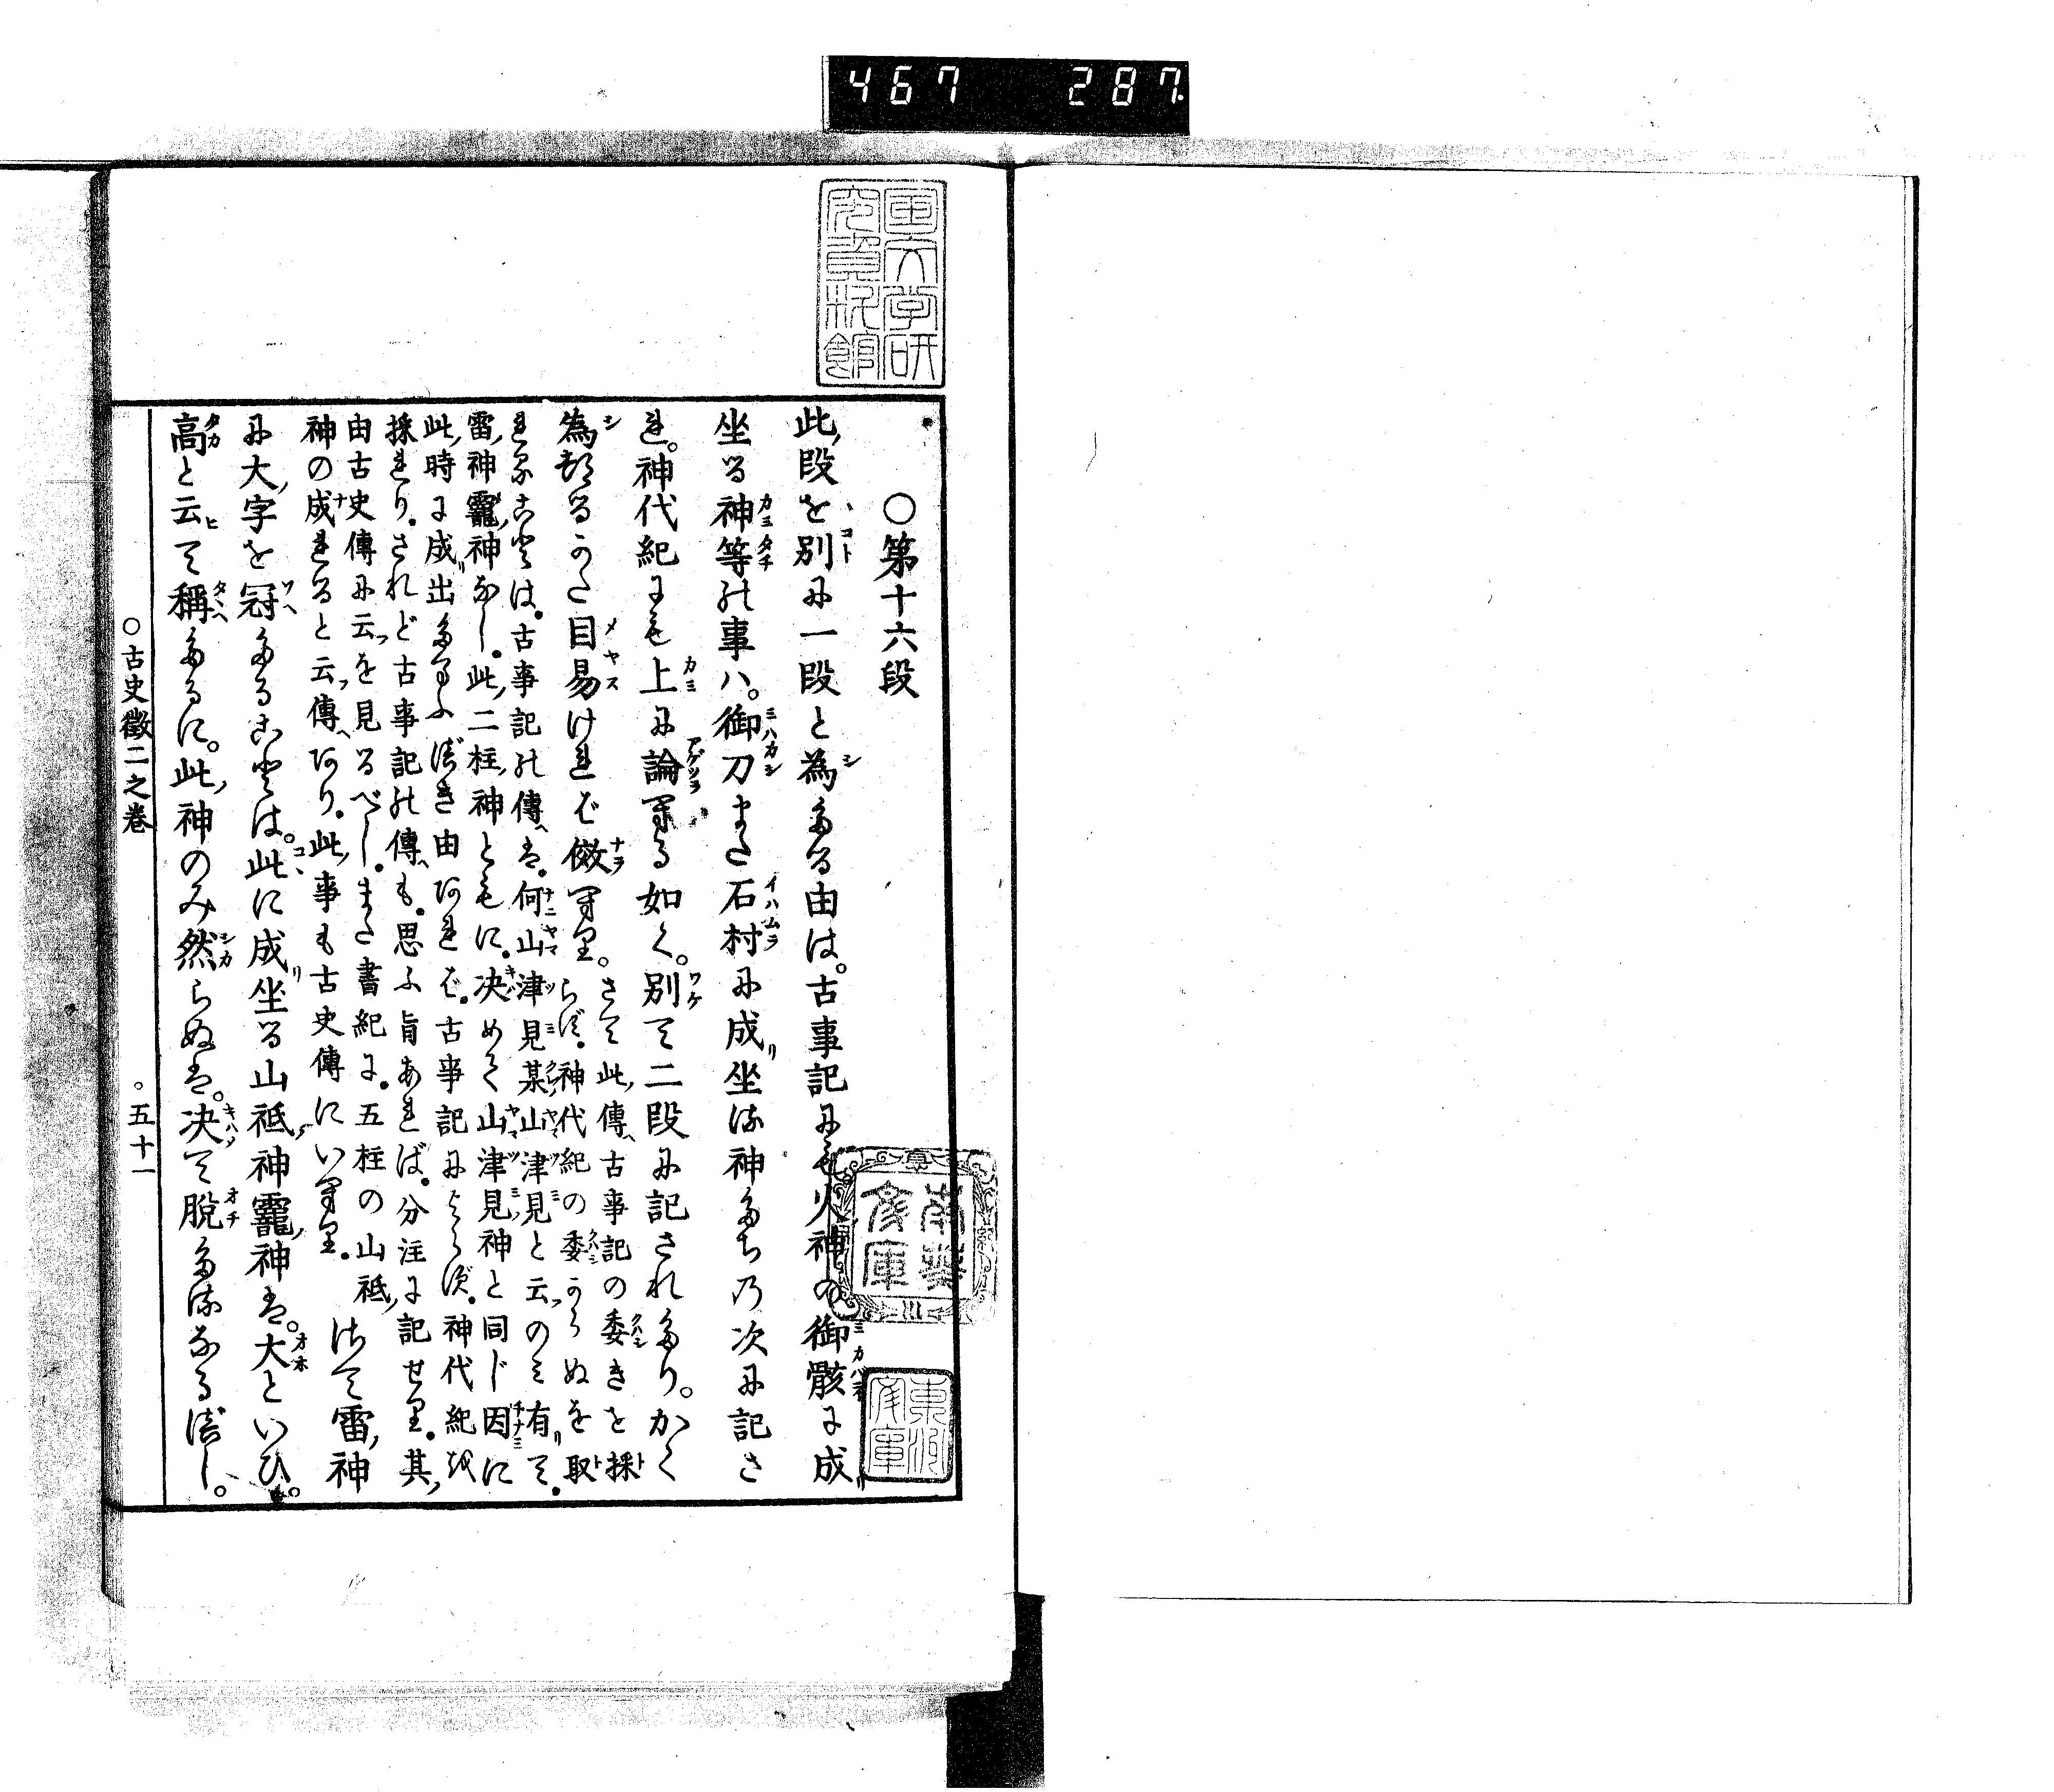 467 287
国文学研
究資料館
○第十六段
此段を別に一段と為たる由は。古事記にも火神の御骸に成
坐る神等の事ハ。御刀また石村に成坐る神たち乃次に記さ
れ。神代紀にも上に論へる如く。別て二段に記されたり。かく
為たるかた目易ければ倣へり。さて此傳古事記の委きを採
らば。神代紀の委からぬを取
れることは。古事記の傳は。何山津見某山津見と云のミ有て。
雷神龗神なし。此二柱神ともに。决めて山津見神と同じ因に
此時に成出たるふべき由あれば。古事記によらず。神代紀を
採れり。されど古事記の傳も。思ふ旨あれば。分注に記せり。其
由古史傳に云を見るべし。また書紀に。五柱の山祇
神の成れると云傳あり。此事も古史傳にいへり。
さて雷神
に大字を冠たることは。此に成坐る山祇神龗神は。大といひ。
高と云て稱たるに。此神のみ然らぬは。决て脱たるなるべし。
○古史徴二之巻
○五十一